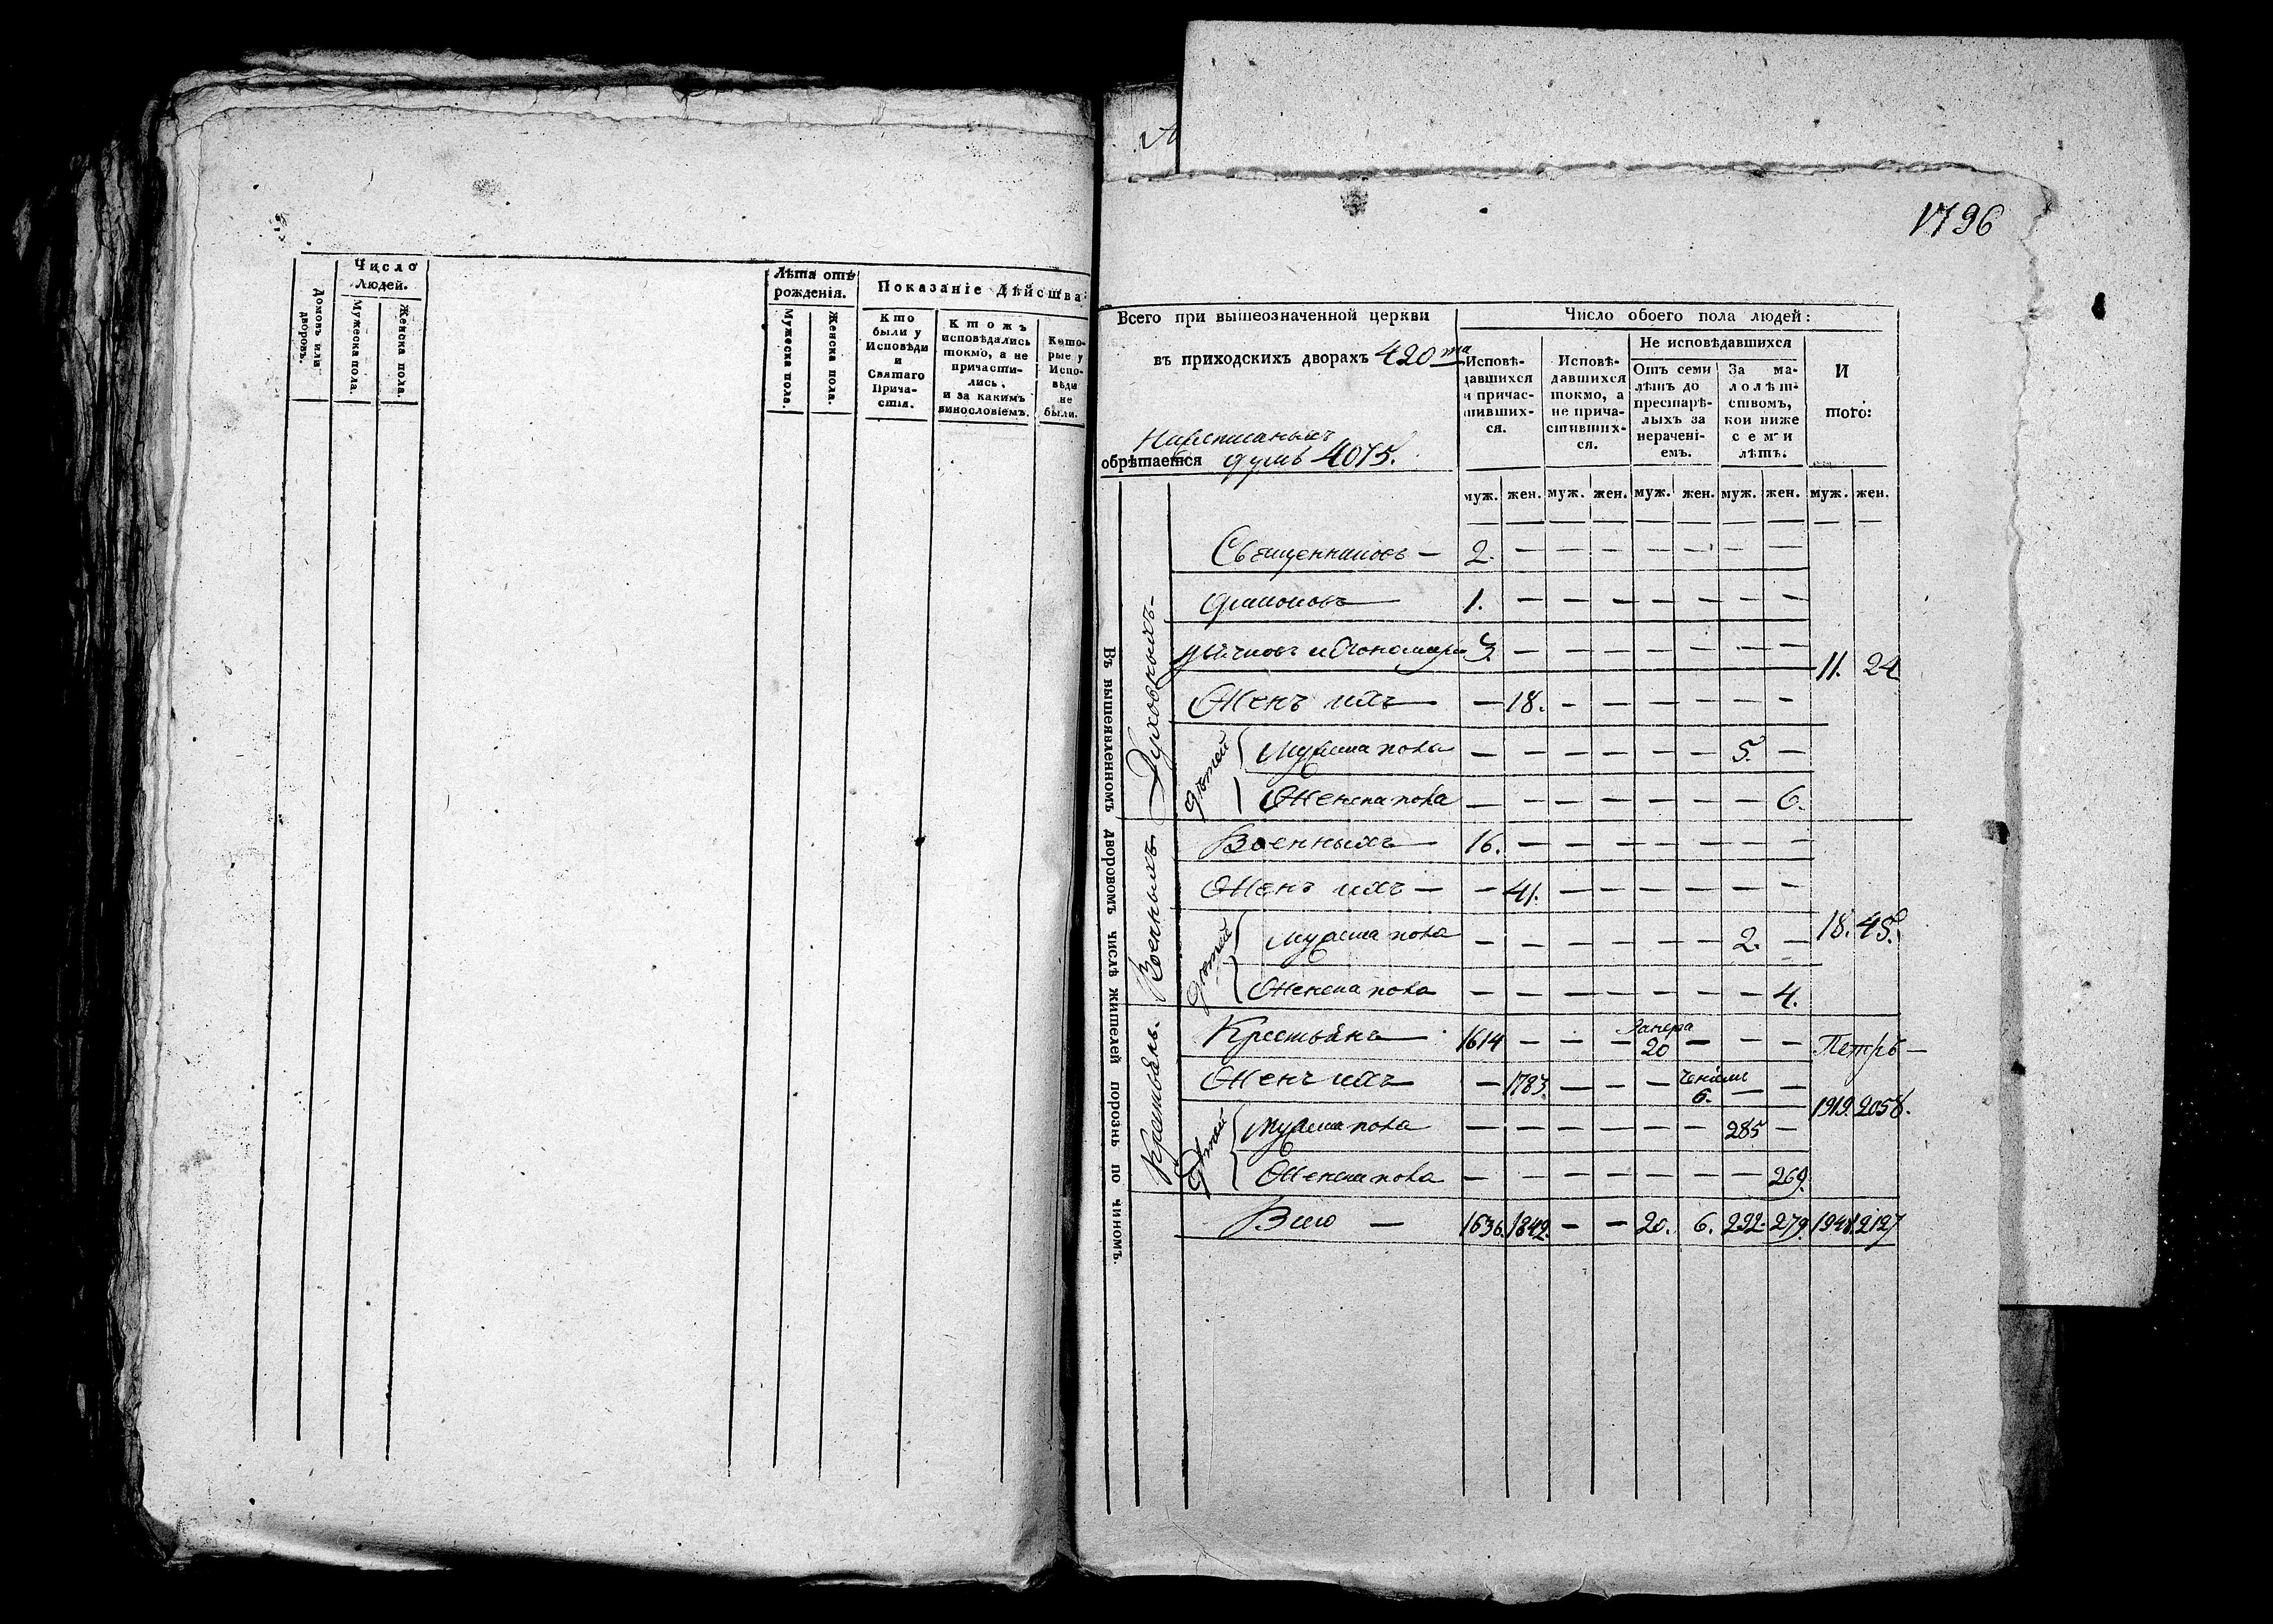 Число
Людей.
Домовъ или дворовъ.
Мужеска пола.
Женска пола.
Лѣта отъ
рожденія.
Мужеска пола.
Женска пола.
Показаніе дѣйства:
Кто
были у
Исповѣди
и
Святаго
Прича-
стія.
Ктожъ
исповѣдались
токмо, а не
причасти-
лись,
и за какимъ
винословіемъ.
Кото-
рые у
Испо-
вѣди
не
были.
1796
Всего при вышеозначенной церкви
въ приходскихъ дворахъ 420ти
обрѣтается душъ 4075.
Число обоего пола людей:
Исповѣ-
давшихся
и причас-
тивших-
ся.
Исповѣ-
давшихся
токмо, а
не прича-
стивших-
ся.
Не исповѣдавшихся
Отъ семи
лѣтъ до
престарѣ-
лыхъ за
нерачені-
емъ.
За ма-
лолѣт-
ствомъ,
кои ниже
семи
лѣтъ.
И
того:
муж. жен. муж. жен. муж. жен. муж. жен. муж. жен.
Въ вышеявленномъ дворовомъ числѣ жителей порознь по чиномъ.
Духовныхъ
Священниковъ — 2. — — — — — — —
Диаконовъ — 1. — — — — — — —
Дьячковъ и Пономаре 3. — — — — — — —
11. 24
Женъ ихъ — — 18. — — — — — —
Дѣтей
Мужеска пола — — — — — — 5. —
Женска пола — — — — — — — 6.
Военныхъ
Военныхъ — 16. — — — — — — —
Женъ ихъ — — 41. — — — — — —
18. 45.
Дѣтей
Мужеска пола — — — — — — 2. —
Женска пола — — — — — — — 4.
Крестьянъ.
Крестьянъ — 1614 — — — Занера 20 — — —
Женъ ихъ — — 1783. — — — ченіемъ 6. — —
1919. 2058.
Дѣтей
Мужеска пола — — — — — — 285 —
Женска пола — — — — — — — 269.
Всего — 1636. 1842. — — 20. 6. 292. 279. 1948. 2127